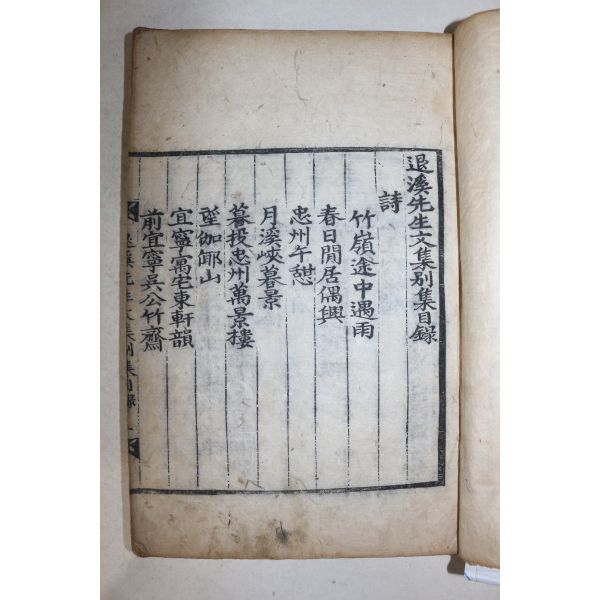 退溪先生文集別集目錄
詩
竹嶺途中遇雨
春日閒居偶興
忠州午憇
月溪峽暮景
暮投忠州萬景樓
望伽倻山
宜寧寓宅東軒韻
前宜寧吳公竹齋
退溪先生文集別集目錄 一